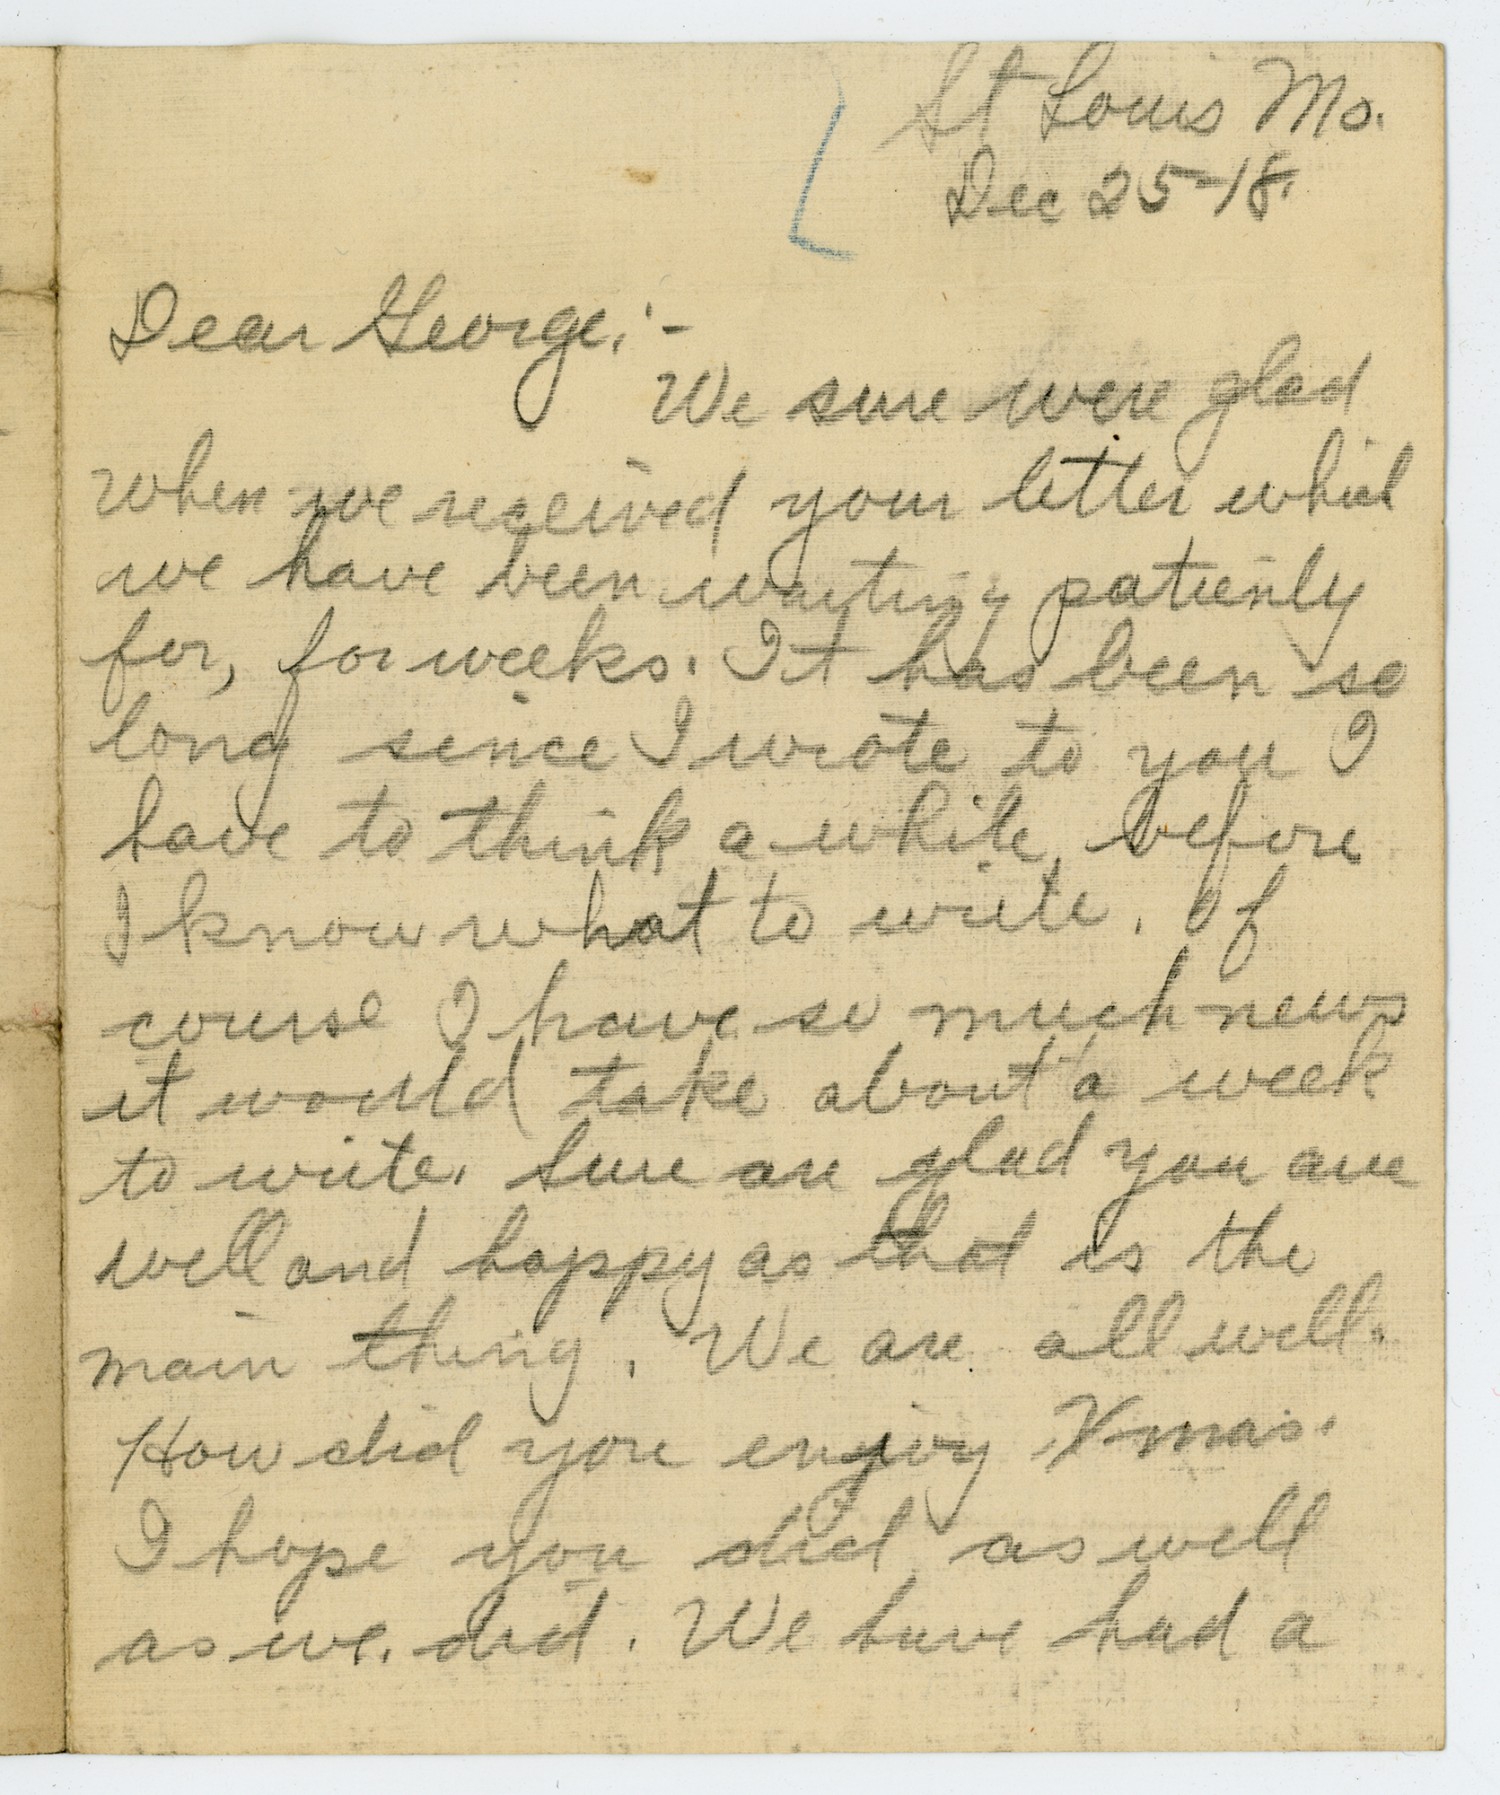 St Louis Mo.
Dec 25-18.
Dear George:-
We sure were glad
when we received your letter which
we have been waiting patienly
for, for weeks. It has been so
long since I wrote to you I
have to think a while before
I know what to write. Of
course I have so much news
it would take about a week
to write. Sure are glad you are
well and happy as that is the
main thing. We are all well.
How did you enjoy Xmas.
I hope you did as well
as we did. We have had a